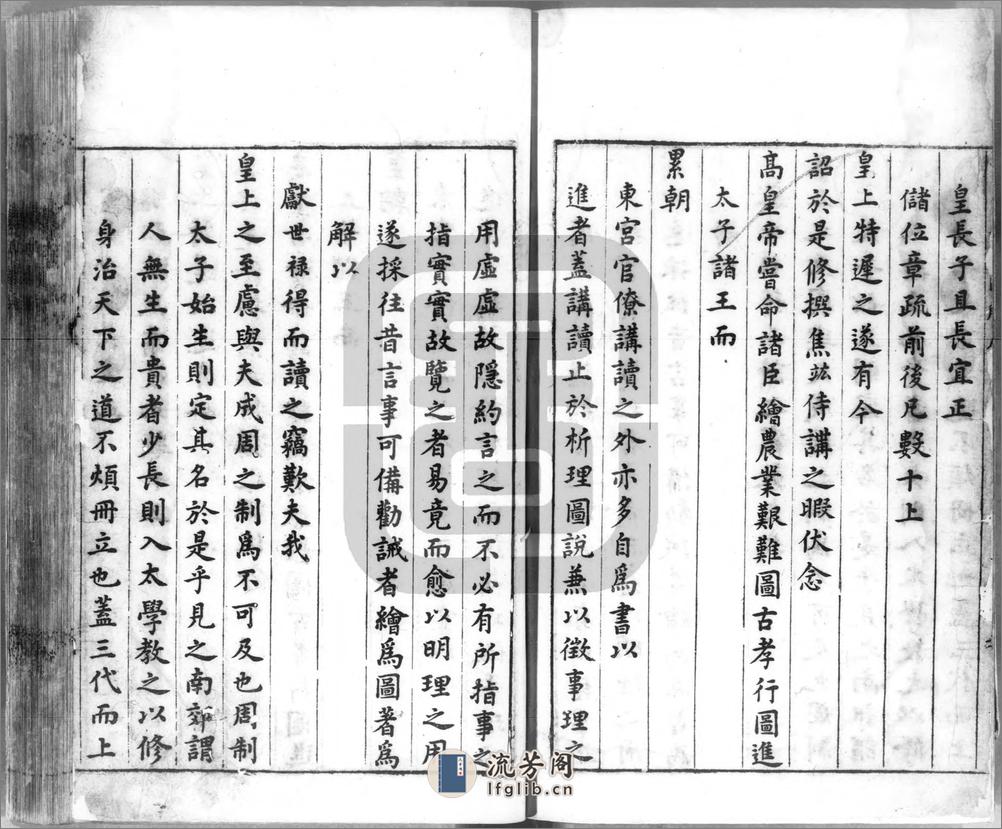 皇長子且長宜正
儲位章疏前後凡數十上
皇上特遲之遂有今
詔於是修撰焦竑侍講之暇伏念
髙皇帝嘗命諸臣繪農業艱難圖古孝行圖進
太子諸王而
累朝
東宮官僚講讀之外亦多自爲書以
進者蓋講讀止於析理圖說兼以徵事理之
用虛虛故隱約言之而不必有所指事之
指實實故覽之者易竟而愈以明理之用
遂採往昔言事可備勸誡者繪爲圖著爲
解以
獻世禄得而讀之竊歎夫我
皇上之至慮與夫成周之制爲不可及也周制
太子始生則定其名於是乎見之南郊謂
人無生而貴者少長則入太學教之以修
身治天下之道不煩冊立也蓋三代而上
流芳阁
lfglib.cn